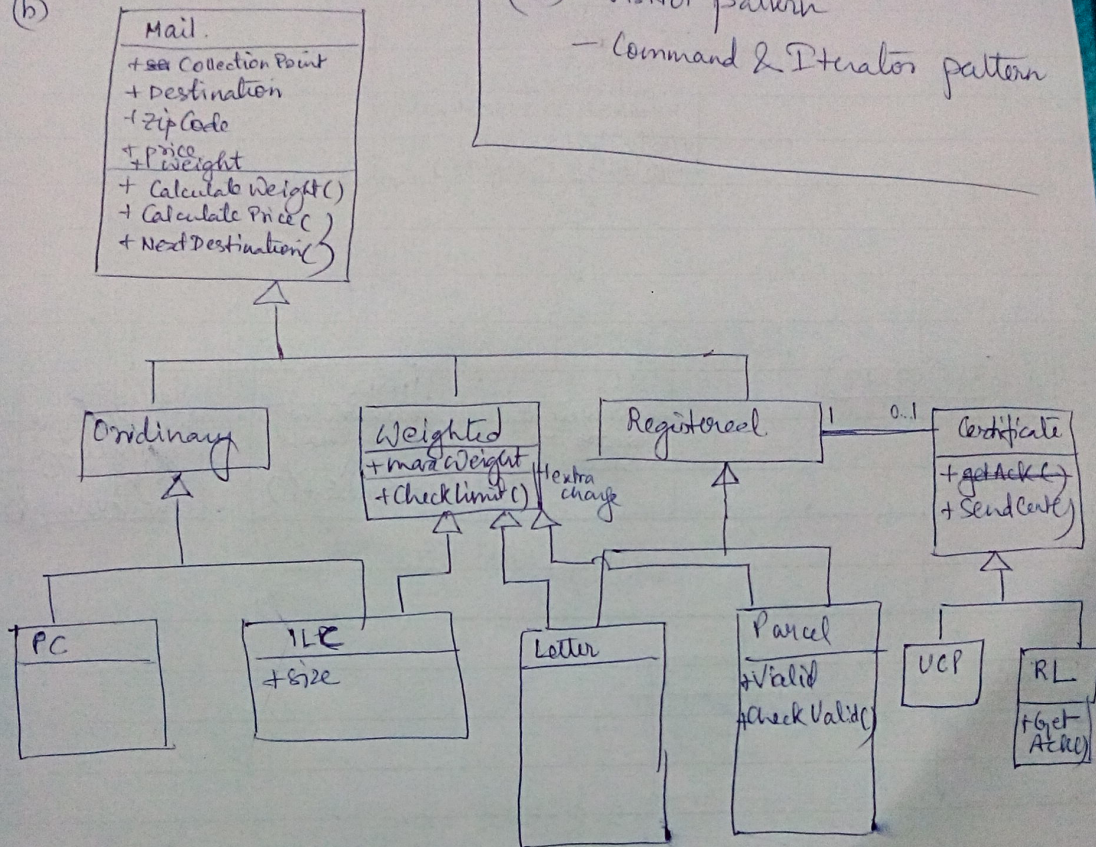 (b)
pattern
- Command & Iterator pattern
Mail.
+ Collection Point
+ Destination
+ Zip Code
+ price
+ weight
+ Calculate Weight()
+ Calculate Price()
+ Next Destination()
Oridinary
Weighted
+ max Weight
+ Check Limit()
+ extra
charge
Registered
1
0..1
Certificate
+ getAck()
+ Send Cert()
PC
ILC
+ size
Letter
Parcel
+ Valid
+ Check Valid()
UCP
RL
+ Get
Ack()